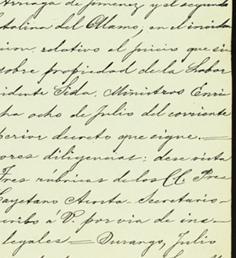 Arriaga de Jimenez y el segundo
talina del Alamo, en el incid
cion, relativo al juicio que si
sobre propiedad de la Labor
idente Sida. Ministros Enri
ha ocho de Julio del corriente
perior decreto que sigue. =
ores diligencias: dese vista
Tres rúbricas de los CC. Pres
Cayetano Acosta. Secretario.
cribo a V. por via de ins-
legales = Durango, Julio